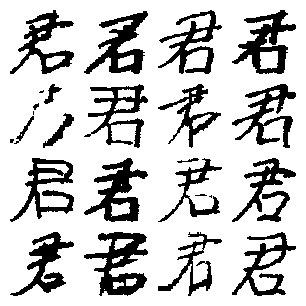 君君君君
君君君
君君君君
君君君君